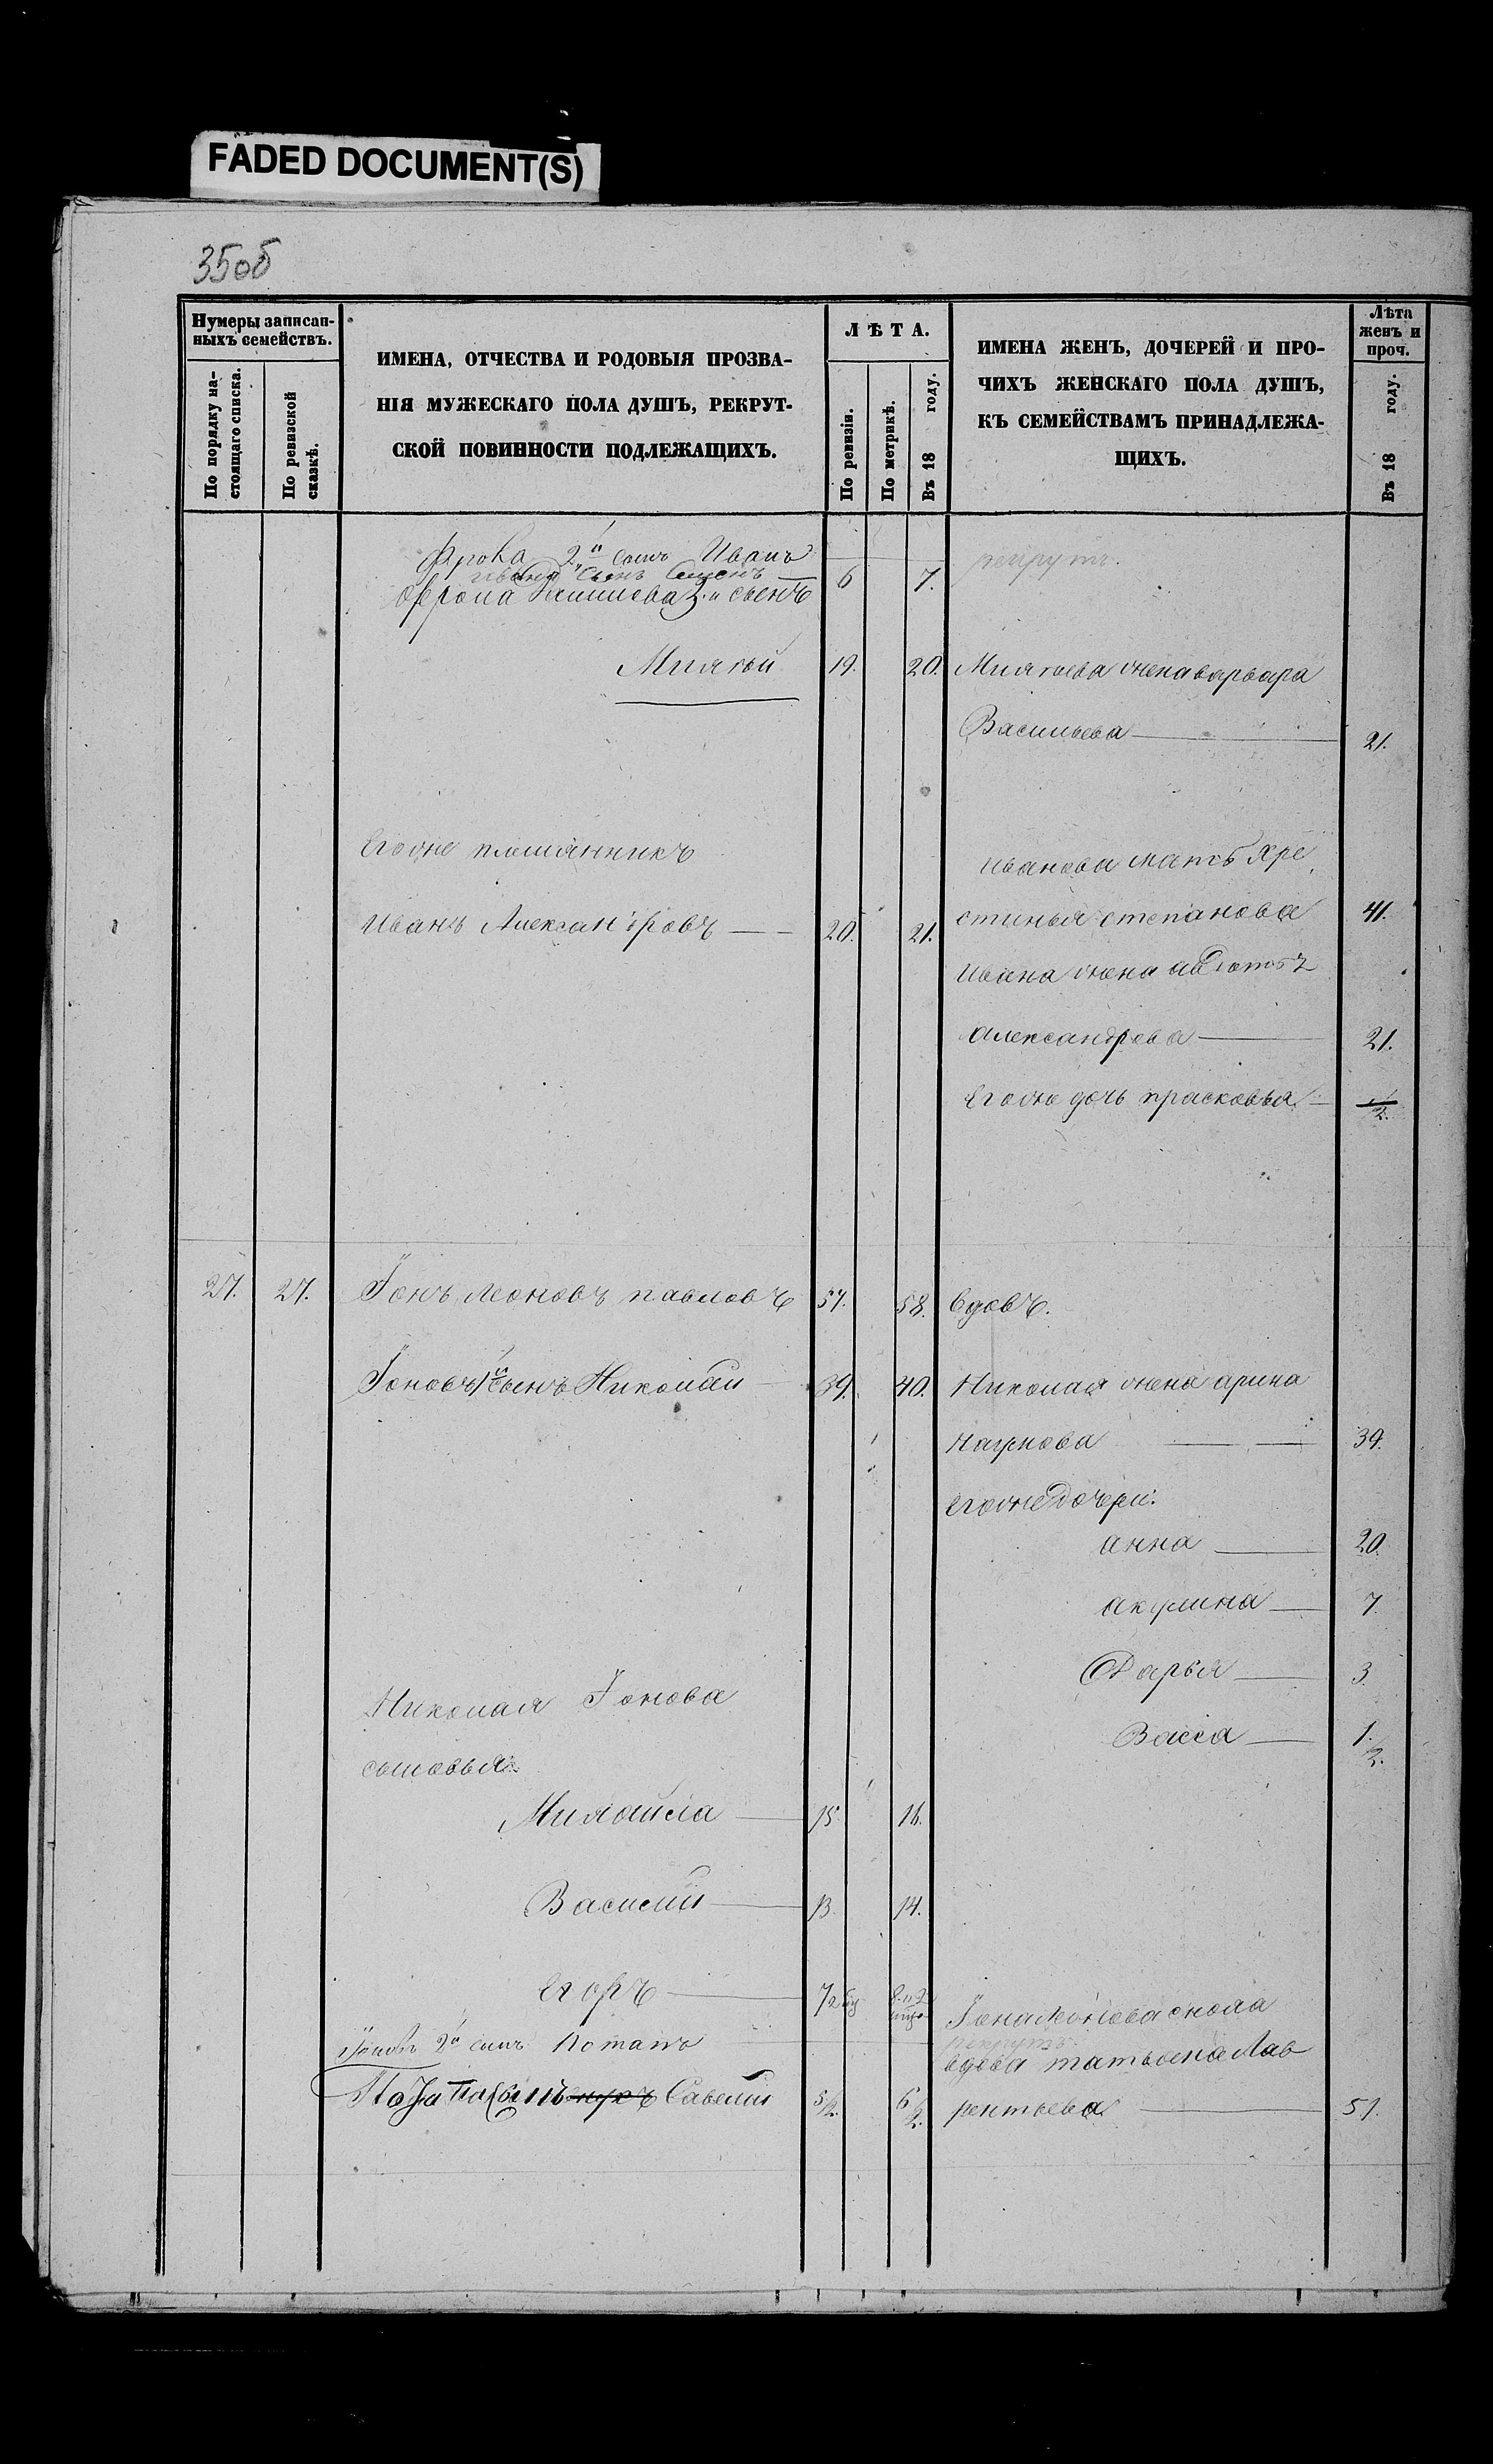 FADED DOCUMENT(S)
35об
Нумеры записан-
ныхъ семействъ.
По порядку на-
стоящаго списка.
По ревизской
сказкѣ.
ИМЕНА, ОТЧЕСТВА И РОДОВЫЯ ПРОЗВА-
НІЯ МУЖЕСКАГО ПОЛА ДУШЪ, РЕКРУТ-
СКОЙ ПОВИННОСТИ ПОДЛЕЖАЩИХЪ.
ЛѢТА.
По ревизіи.
По метрикѣ.
Въ 18 году.
ИМЕНА ЖЕНЪ, ДОЧЕРЕЙ И ПРО-
ЧИХЪ ЖЕНСКАГО ПОЛА ДУШЪ,
КЪ СЕМЕЙСТВАМЪ ПРИНАДЛЕЖА-
ЩИХЪ.
Лѣта
женъ и
проч.
Въ 18 году.
Фрола 2й сынъ Иванъ
рекрутъ.
Ивана сынъ Семенъ 6 7.
3й сынъ
Михай 19. 20. Михаева жена варвара
Васильева 21.
Егоже племянникъ
Иванова мать Хре
Иванъ Александровъ 20. 21. стинья степанова 41.
Ивана жена авдотья
александрова 21.
Егожо дочь прасковья 1/2.
27. 27. Іонъ леоновъ павловъ 57. 58. вдовъ.
Іоновъ 1й сынъ Николай 39. 40. Николая жена арина
Наумова 39.
Егоже дочери:
анна 20.
акулина 7.
Дарья 3.
Николая Іонова
Васса 1/2.
сыновья:
Михайла 15. 16.
Василий 13. 14.
Егоръ 7
Іона леонова сноха
Іоновъ 2й сынъ Потапъ
рекрутъ
вдова татьяна Лав
Потапа сынъ Савелий 5/2. 6/2. рентьева 51.